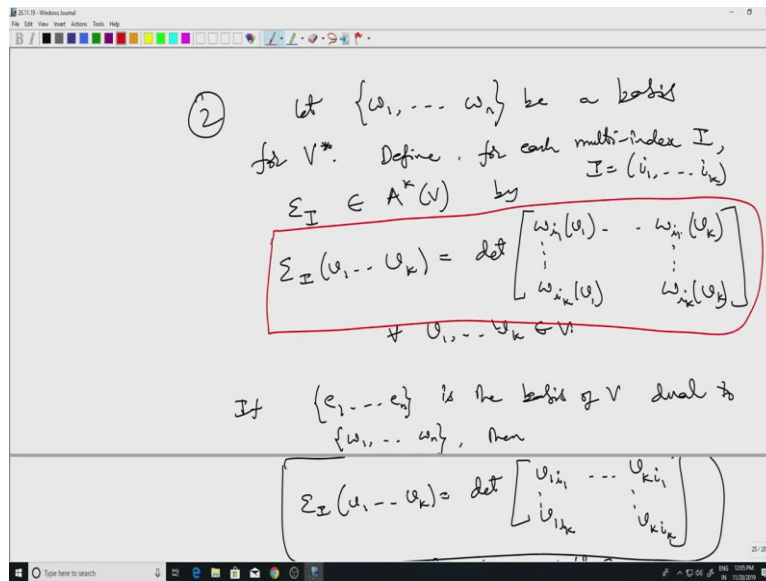 26.11.19 - Windows Journal
File Edit View Insert Actions Tools Help
② let {ω₁, --- ωₙ} be a basis
for V*. Define, for each multi-index I,
I = (i₁, --- iₖ)
Σ_I ∈ Aᵏ(V) by
Σ_I (v₁ -- vₖ) = det [ω_{i₁}(v₁) - - ω_{i₁}(vₖ)
⋮ ⋮
ω_{iₖ}(v₁) ω_{iₖ}(vₖ)]
∀ v₁, -- vₖ ∈ V.
If {e₁ --- eₙ} is the basis of V dual to
{ω₁, -- ωₙ}, then
Σ_I (v₁ -- vₖ) = det [v_{1i₁} --- v_{ki₁}
⋮ ⋮
v_{1iₖ} v_{kiₖ}]
25/28
Type here to search
ENG 12:05 PM
IN 11/28/2019